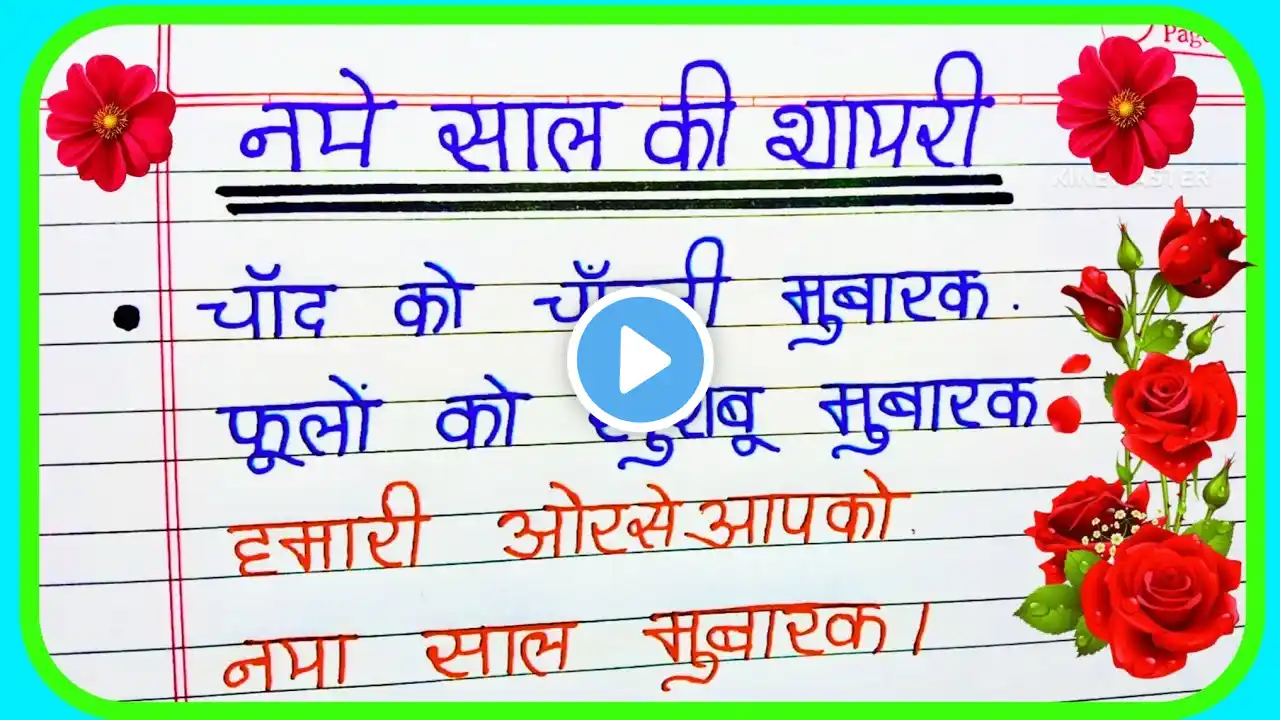 Page
नये साल की शायरी
KINEMASTER
चाँद को मुबारक.
फूलों को मुबारक
हमारी ओरसे आपको.
नया साल मुबारक।